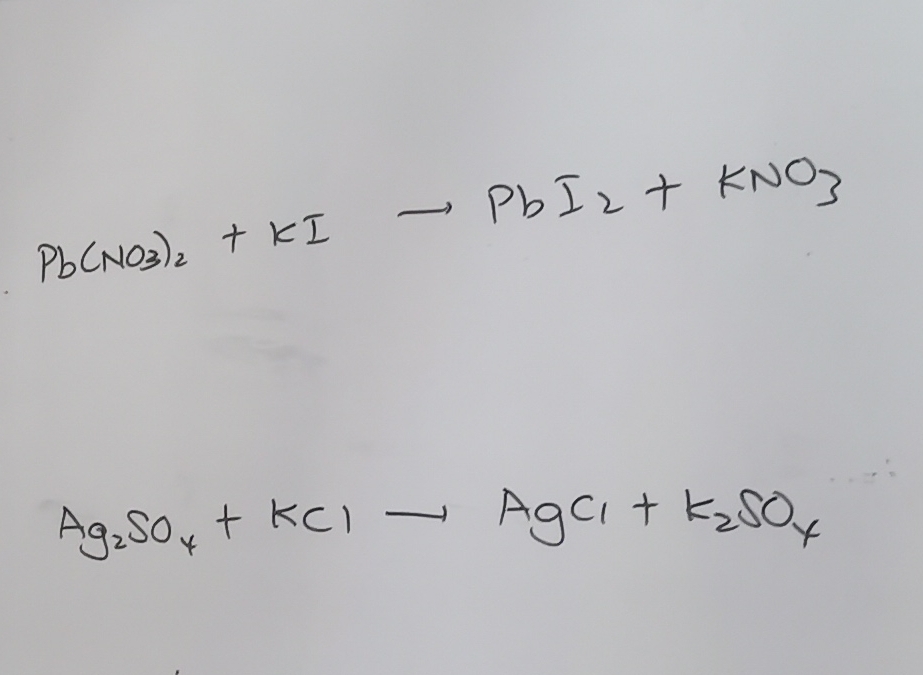 Pb(NO3)₂ + KI → PbI₂ + KNO₃
Ag₂SO₄ + KCl → AgCl + K₂SO₄